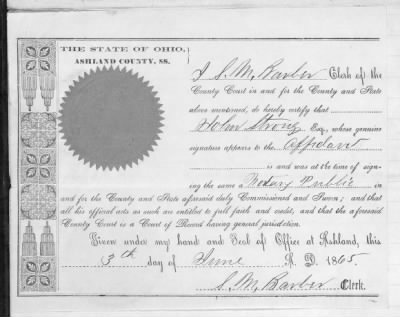 THE STATE OF OHIO,
ASHLAND COUNTY, SS.
I S. M. Barber Clerk of the
County Court in and for the County and State
above mentioned, do hereby certify that
John Strong Esq., whose genuine
signature appears to the Affidavit
is and was at the time of sign-
ing the same a Notary Public in
and for the County and State aforesaid duly Commissioned and Sworn; and that
all his official acts as such are entitled to full faith and credit, and that the aforesaid
County Court is a Court of Record having general jurisdiction.
Given under my hand and Seal of Office at Ashland, this
3th day of June A. D. 1865
S. M. Barber Clerk.